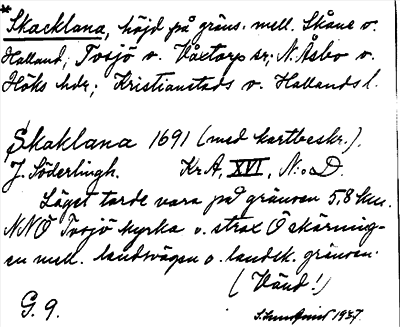 * Skacklana, höjd på gräns. mell. Skåne o.
Halland, Tosjö o. Våxtorp sr; N. Åsbo o.
Höks hdr; Kristianstads o. Hallands l.
Skaklana 1691 (med kartbeskr.).
J. Söderlingh. Kr.A, XVI, N:o D.
Läget torde vara på gränsen 5,8 km.
NNÖ Tosjö kyrka o. strax Ö skärning-
en mell. landsvägen o. landsk. gränsen.
(Vänd!)
G. 9. 1937.